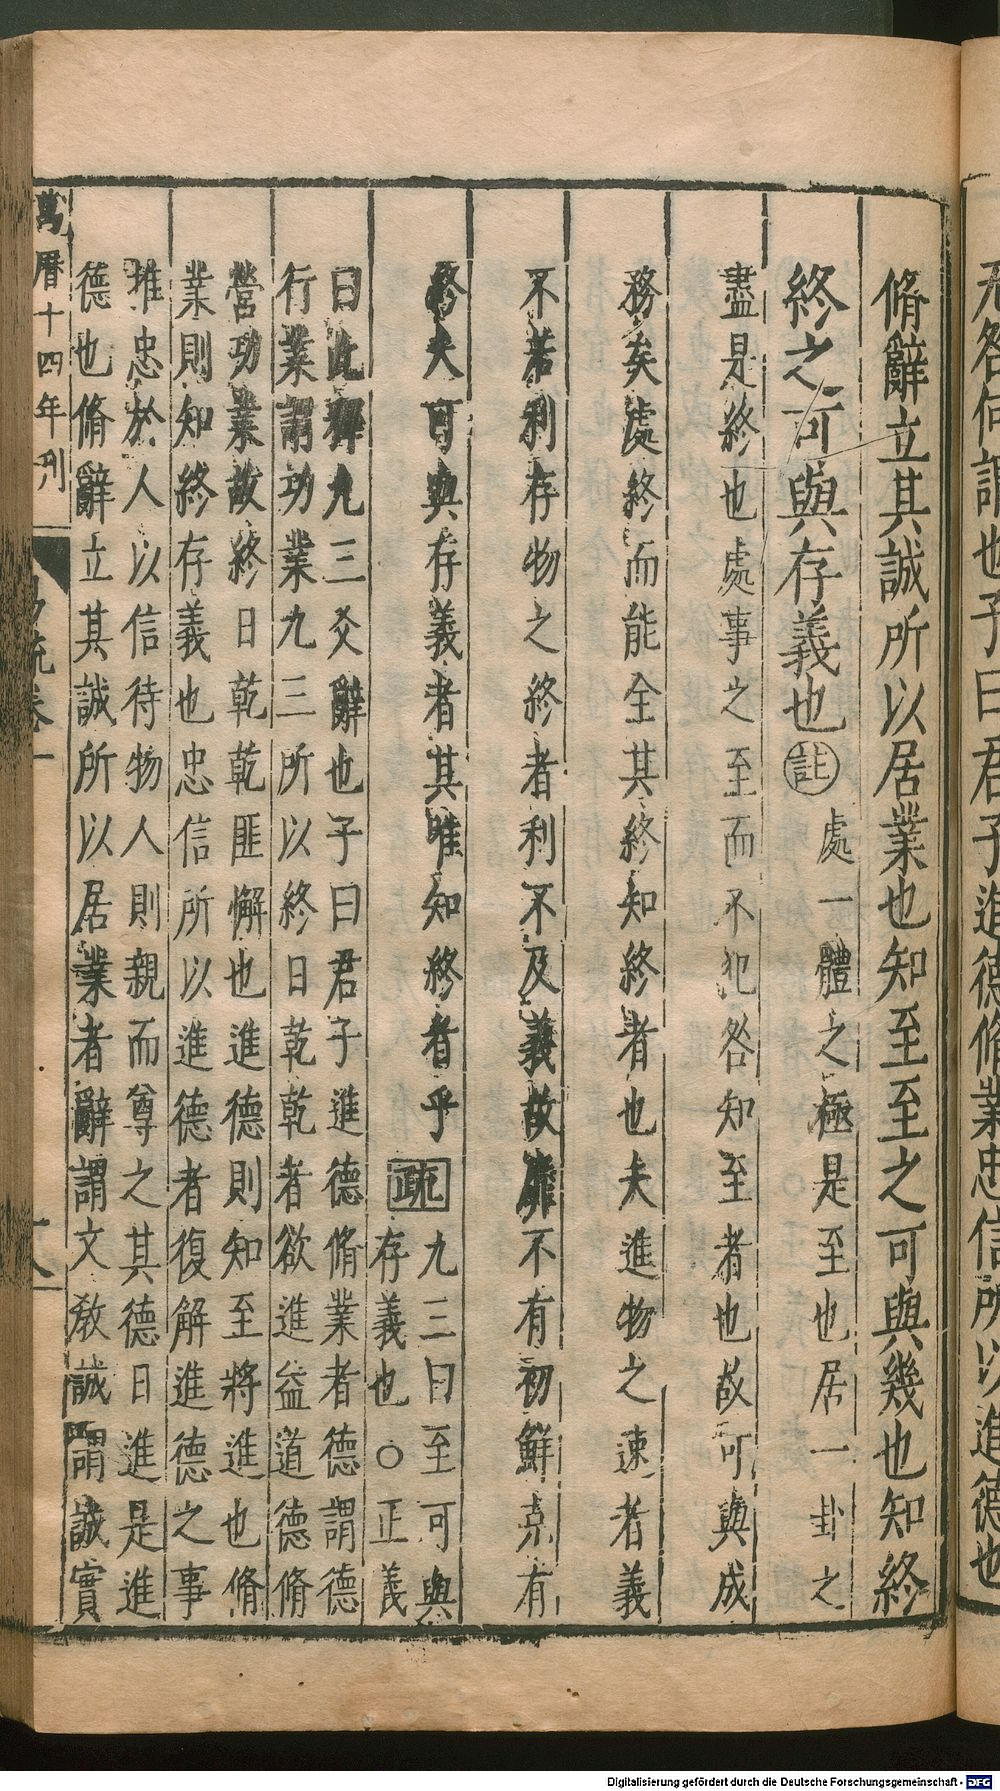 无咎何謂也子曰君子進德脩業忠信所以進德也
脩辭立其誠所以居業也知至至之可與幾也知終
終之可與存義也註處一體之極是至也居一卦之
盡是終也處事之至而不犯咎知至者也故可與成
務矣處終而能全其終知終者也夫進物之速者義
不若利存物之終者利不及義故靡不有初鮮克有
終夫可與存義者其唯知終者乎疏九三曰至可與
存義也○正義
曰此釋九三爻辭也子曰君子進德脩業者德謂德
行業謂功業九三所以終日乾乾者欲進益道德脩
營功業故終日乾乾匪懈也進德則知至將進也脩
業則知終存義也忠信所以進德者復解進德之事
推忠於人以信待物人則親而尊之其德日進是進
德也脩辭立其誠所以居業者辭謂文教誠謂誠實
萬曆十四年刊
易疏卷一
Digitalisierung gefördert durch die Deutsche Forschungsgemeinschaft - DFG